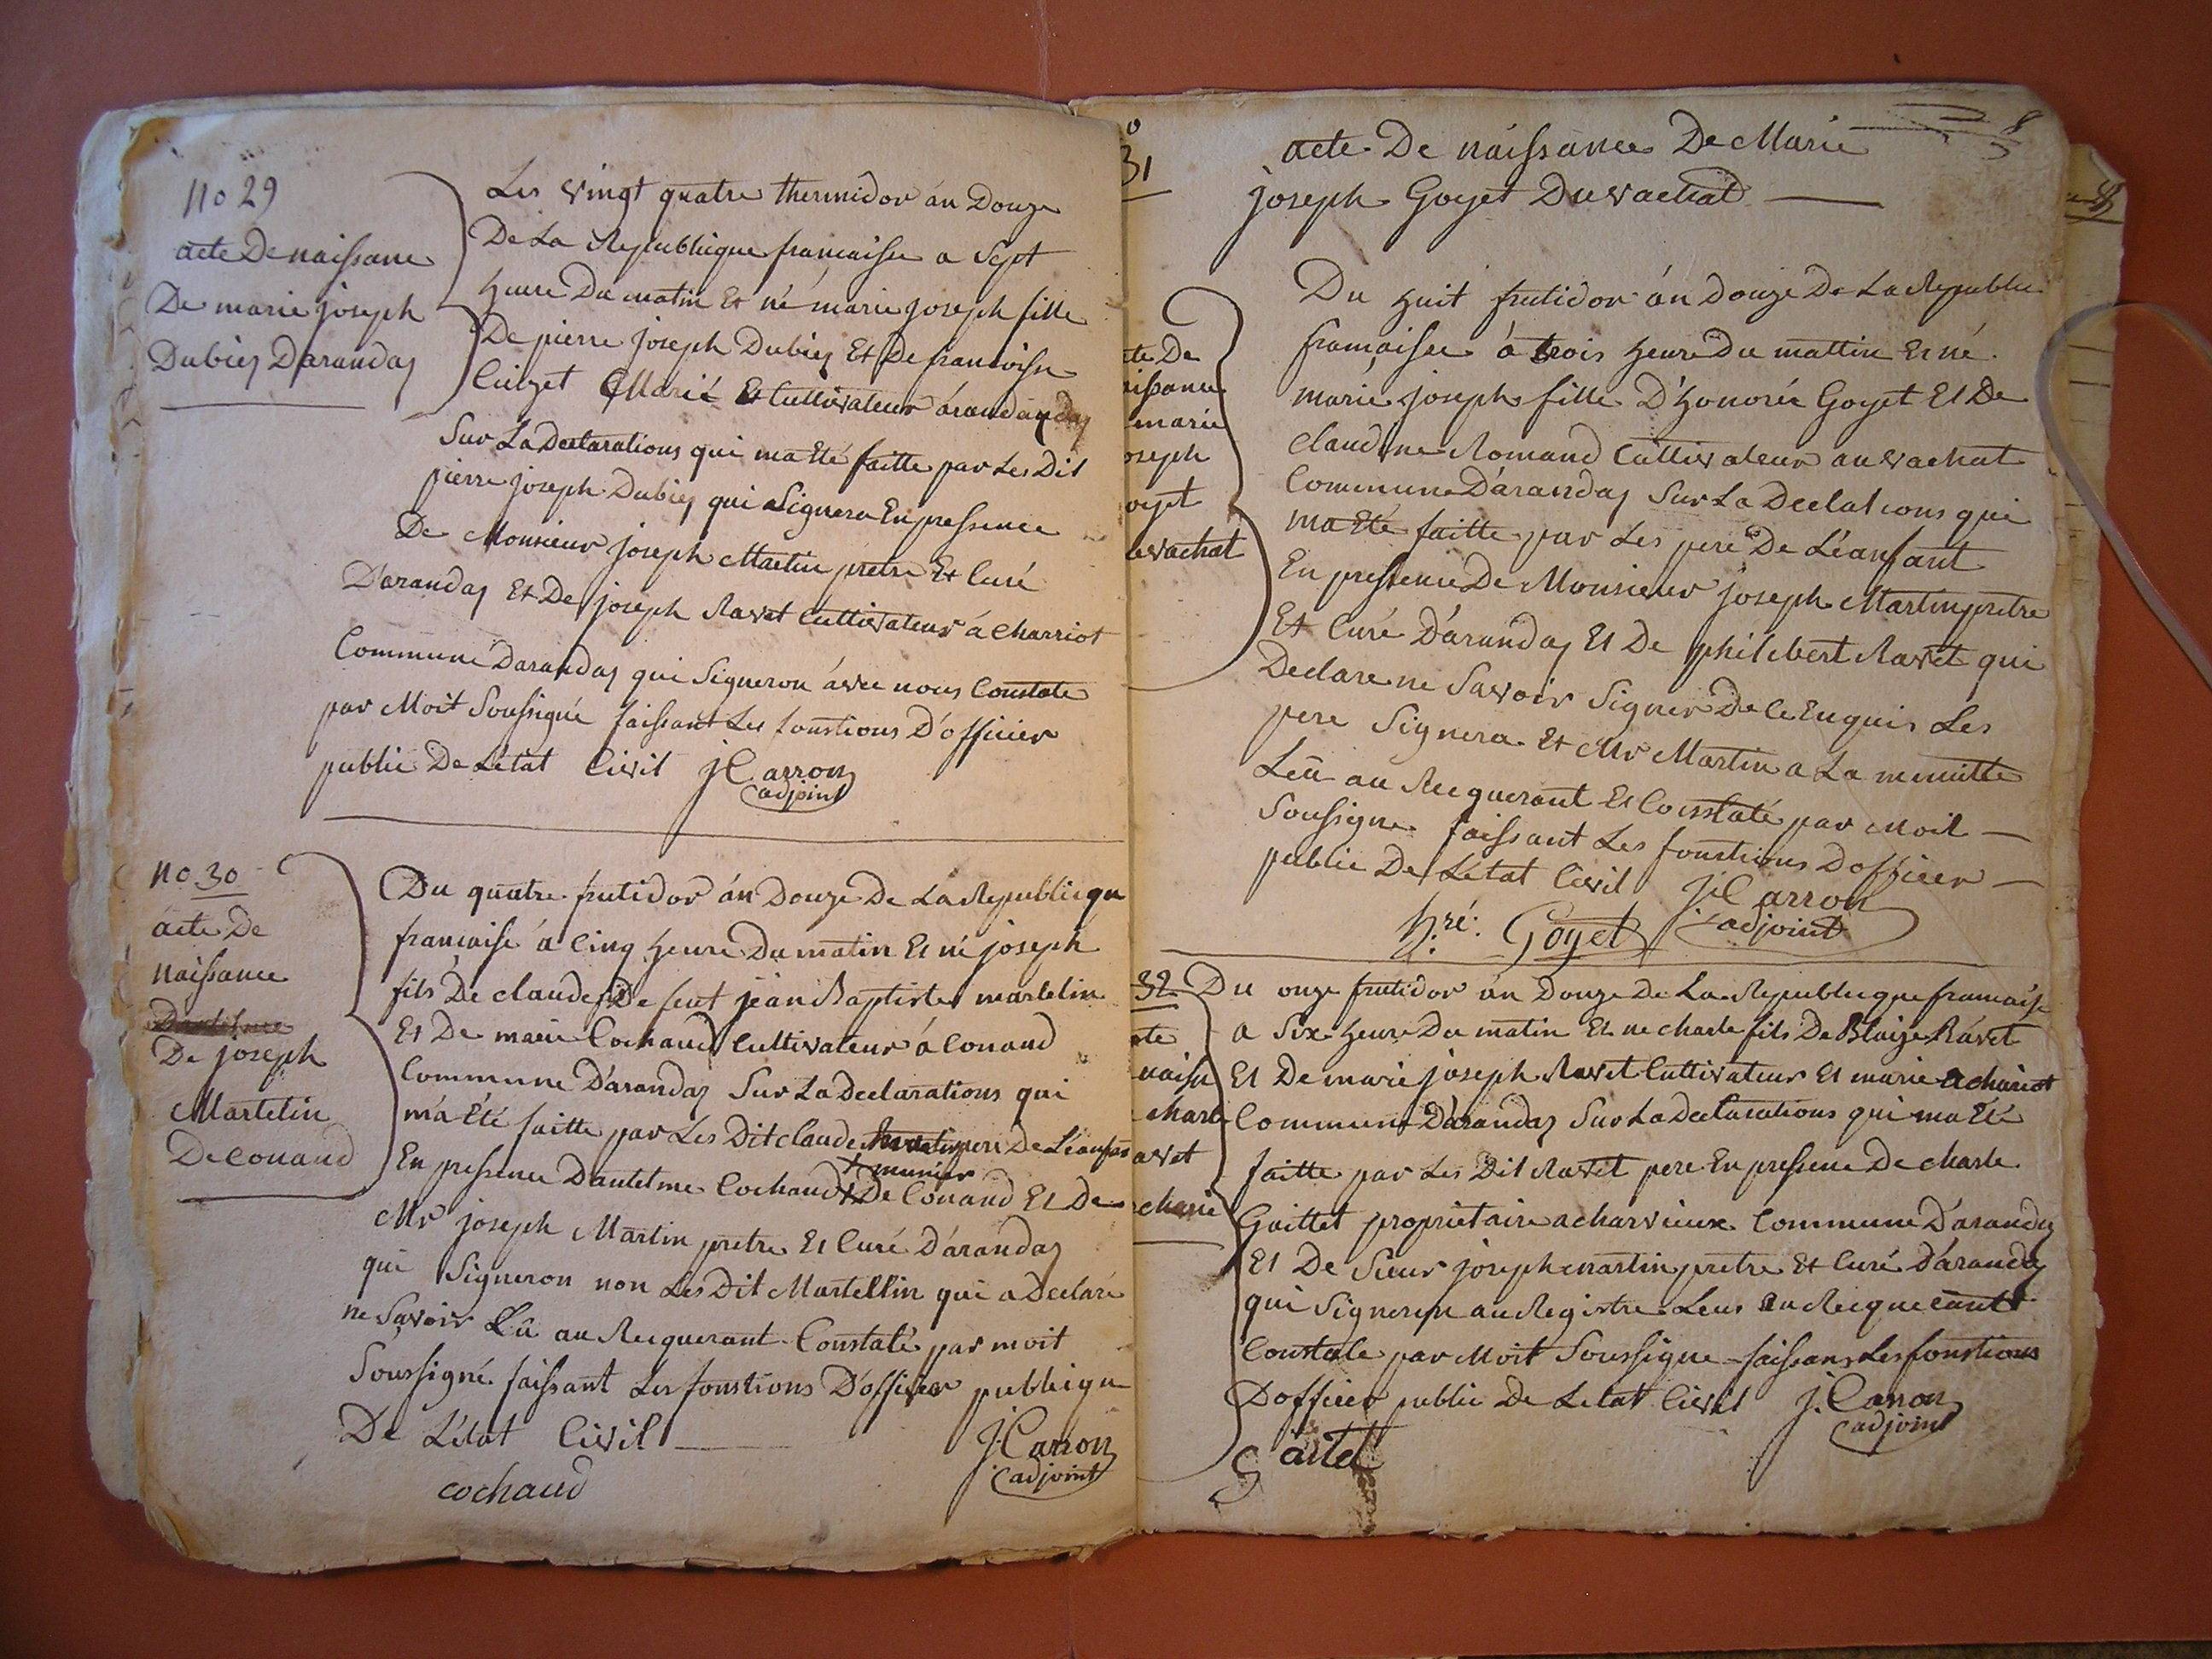 no 29
acte De naissane
De marie joseph
Dubiez D'arandaz
Les vingt quatre thermidor án Douze
De La Republique francaisse a Sept
heure Du matin Et né marie joseph fille
De pierre joseph Dubiez Et De francoisse
Cuizet Marié Et Cultivateur
Sur La Declarations qui ma Eté faitte par Les Dit
pierre joseph Dubiez qui Signera En pressence
De Monsieur joseph Martin pretre Et Curé
D'arandaz Et De joseph Ravet Cultivateur á Charriot
Commune Darandaz qui Signeron ávec nous Constate
par Moit Soussigné faissant Les fonstions D'officier
public De Létat Civil J Carron
adjoint
no 30
ácte De
naissance
De joseph
Martelin
De conand
Du quatre frutidor án Douze De La Republiqu
francaise á Cinq heure Du matin Et né joseph
fils De claude De feut jean Baptiste martelin
Et De marie Cochaud Cultivateur á Conand
Commune D'arandaz Sur La Declarations qui
m'a Eté faitte par Les Dit claude pere De Léanfan
munier
En pressence D'antelme Cochaud De Conand Et De
Mr joseph Martin pretre Et Curé D'arandaz
qui Signeron non Les Dit Martellin qui a Declaré
ne Savoir Lû au Recquerant Constaté par moit
Soussigné faissant Les fonstions D'officier publiqu
De L'état Civil
J. Carron
adjoint
cochaud
8
o
31
acte De naissance De Marie
joseph Goyet Du vachat
te De
aissance
marie
oseph
oyet
vachat
Du huit frutidor án Douze De La Republi
françaisee á trois heure Du mattin Et né
marie joseph fille D'honorée Goyet Et De
claudine Romand Cultivateur au vachat
Commune D'arandaz Sur La Declations qui
ma Eté faitte par Les pere De Léanfant
En pressence De Monsieur joseph Martin pretre
Et Curé D'arandaz Et De philebert Ravet qui
Declare ne Savoir Signer De ce Enquis Les
pere Signera Et Mr Martin a La menuitte
Leû au Recquerant Et Constaté par moit
Soussigne faissant Les fonstions D officier
public De L'état Civil J C arron
adjoint
h.ré: Goyet
32
te
naiss
charle
avet
Du onze frutidor án Douze De La Republicque francaisse
a Six heure Du matin Et ne charle fils De Blaize Ravet
Et De marie joseph Ravet Cultivateur Et marie a chariot
Commune D'arandaz Sur La Declarations qui ma Eté
faitte par Les Dit Ravet pere En pressence De charle
Gaittet proprietaire a charvieux Commune D'arandaz
Et De Sieur joseph martin pretre Et Curé D'arandaz
qui Signeron au Registre Leus au Recquerant
Constate par Moit Soussigne faissans Les fonstions
D officier public De Letat Civil J. Carron
adjoint